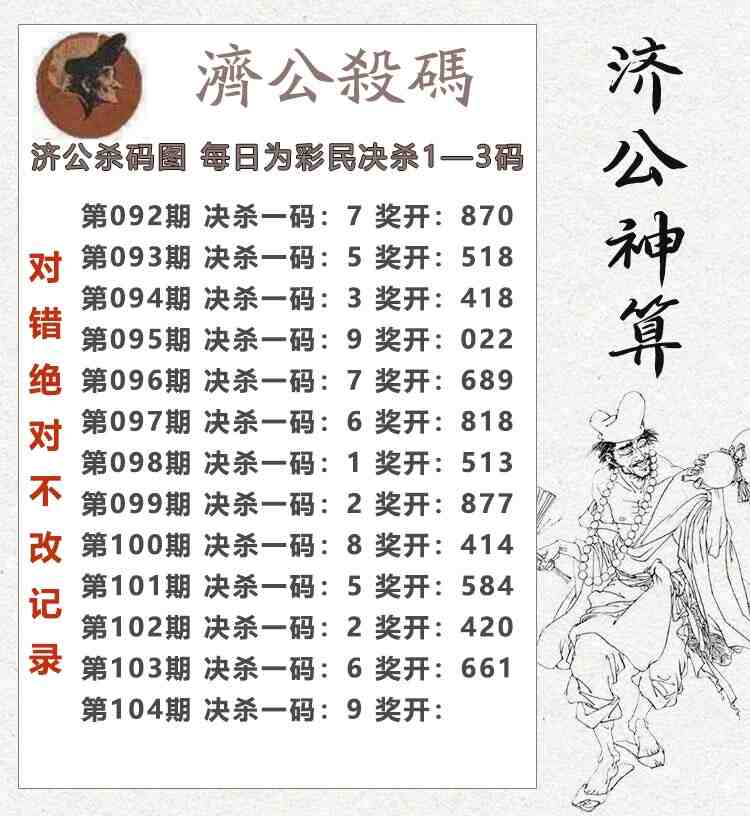 濟公殺碼
济公杀码图 每日为彩民决杀1—3码
第092期 决杀一码：7 奖开：870
第093期 决杀一码：5 奖开：518
第094期 决杀一码：3 奖开：418
第095期 决杀一码：9 奖开：022
第096期 决杀一码：7 奖开：689
第097期 决杀一码：6 奖开：818
第098期 决杀一码：1 奖开：513
第099期 决杀一码：2 奖开：877
第100期 决杀一码：8 奖开：414
第101期 决杀一码：5 奖开：584
第102期 决杀一码：2 奖开：420
第103期 决杀一码：6 奖开：661
第104期 决杀一码：9 奖开：
对错绝对不改记录
济公神算